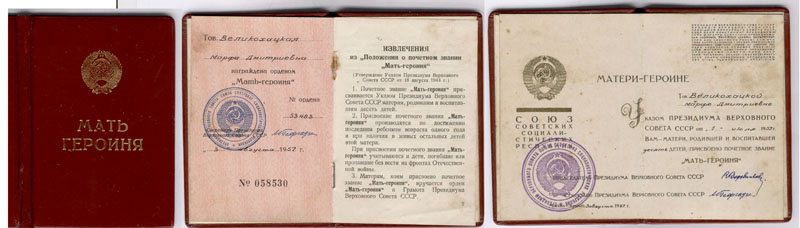 МАТЬ
ГЕРОИНЯ
Тов. Великохацкая
Марфа Дмитриевна
награждена орденом
„Мать-героиня"
№ ордена
53403
августа 1957 г.
№ 058530
ИЗВЛЕЧЕНИЯ
из „Положения о почетном звании
„Мать-героиня"
(Утверждено Указом Президиума Верховного
Совета СССР от 18 августа 1944 г.)
1. Почетное звание „Мать-героиня" при-
сваивается Указом Президиума Верховного
Совета СССР матери, родившей и воспитав-
шей десять детей.
2. Присвоение почетного звания „Мать-
героиня" производится по достижении
последним ребенком возраста одного года
и при наличии в живых остальных детей
этой матери.
При присвоении почетного звания „Мать-
героиня" учитываются и дети, погибшие или
пропавшие без вести на фронтах Отечествен-
ной войны.
3. Матерям, коим присвоено почетное
звание „Мать-героиня", вручается орден
„Мать-героиня" и Грамота Президиума
Верховного Совета СССР
СОЮЗ
СОВЕТСКИХ
СОЦИАЛИ-
СТИЧЕСКИХ
РЕСПУБЛИК
МАТЕРИ-ГЕРОИНЕ
Тов. Великохацкой
Марфе Дмитриевне
Указом ПРЕЗИДИУМА ВЕРХОВНОГО
СОВЕТА СССР от 1957 г.
ВАМ-МАТЕРИ, РОДИВШЕЙ И ВОСПИТАВШЕЙ
десять ДЕТЕЙ, ПРИСВОЕНО ПОЧЕТНОЕ ЗВАНИЕ
"МАТЬ-ГЕРОИНЯ"
ПРЕДСЕДАТЕЛЬ ПРЕЗИДИУМА ВЕРХОВНОГО СОВЕТА СССР
СЕКРЕТАРЬ ПРЕЗИДИУМА ВЕРХОВНОГО СОВЕТА СССР
августа 1957 г.